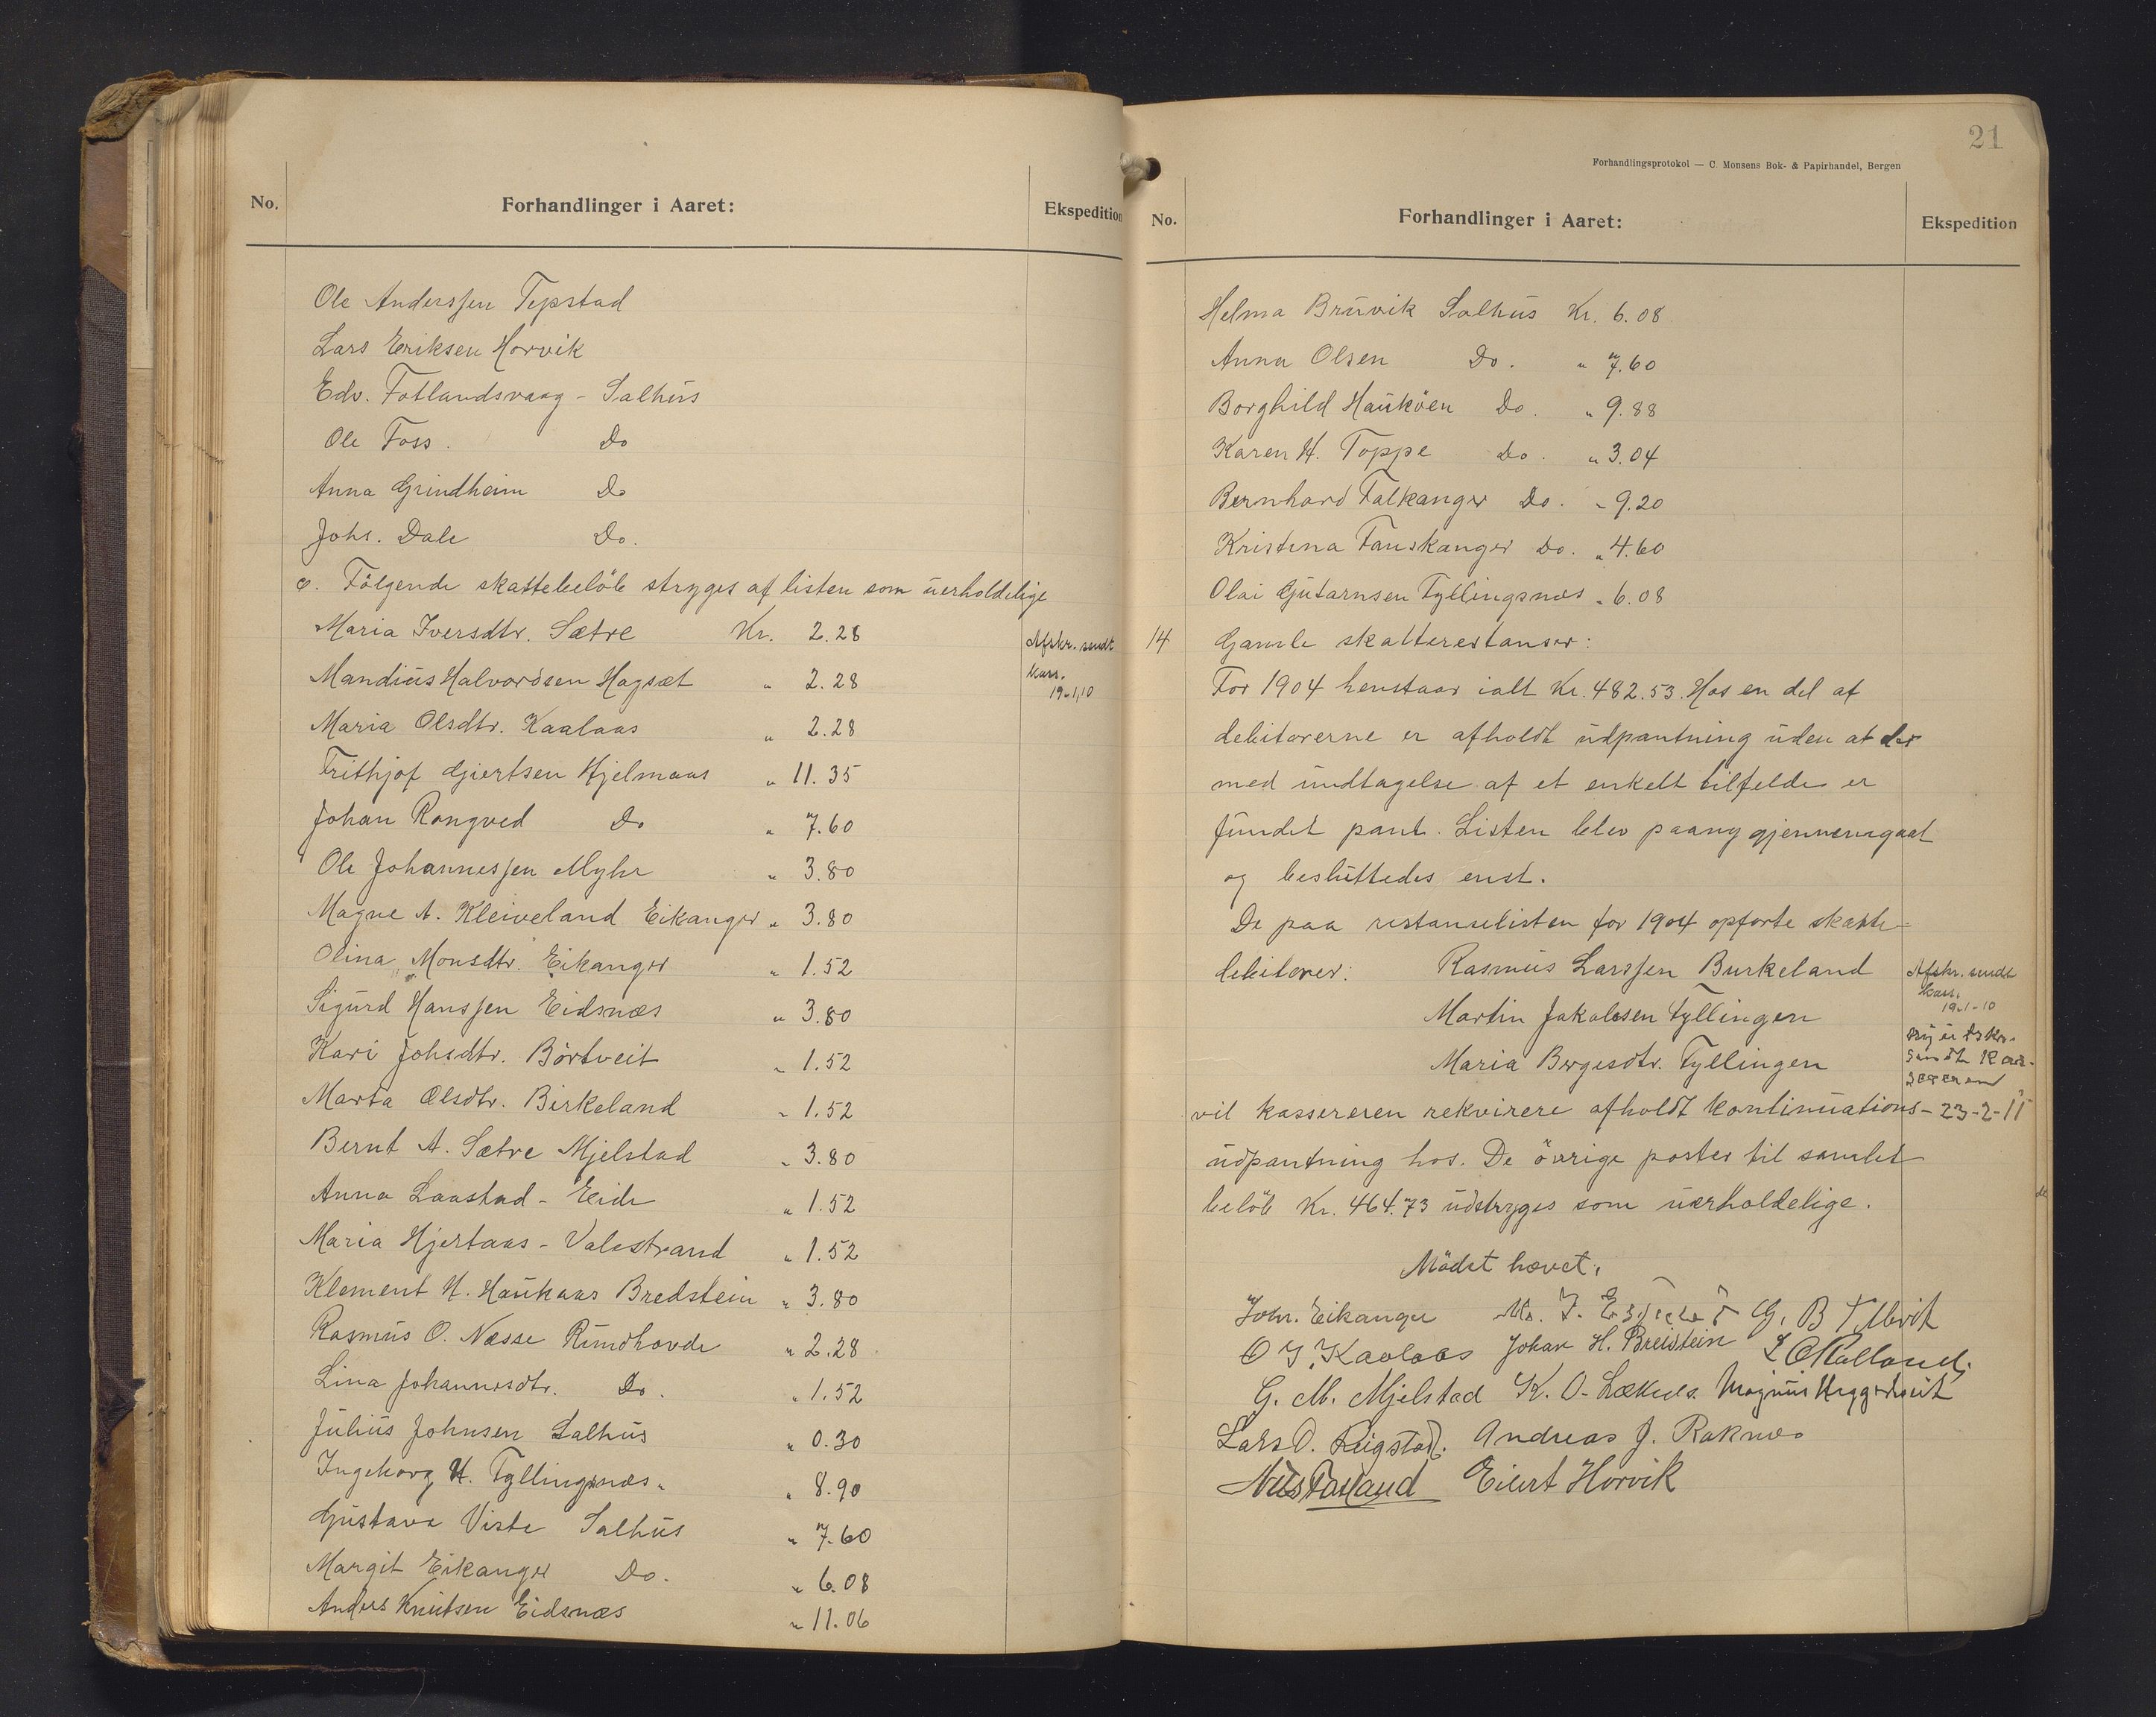 No.
Forhandlinger i Aaret:
Ekspedition
Ole Anderssen Tepstad
Lars Eriksen Horvik
Edv. Fotlandsvaag - Salhus
Ole Foss. Do
Anna Grindheim Do
Johs. Dale Do.
c. Følgende skattebeløb stryges af listen som uerholdelige
Maria Iversdtr. Sætre Kr. 2.28
Afskr. sendt
Kass.
19-1,10
Mandius Halvorsen Hagsæt " 2.28
Maria Olsdtr. Kaalaas " 2.28
Frithjof Gjertsen Hjelmaas " 11.35
Johan Rongved Do " 7.60
Ole Johannessen Myhr " 3.80
Magne A. Kleiveland Eikanger " 3.80
Olina Monsdtr. Eikanger " 1.52
Sigurd Hanssen Eidsnæs " 3.80
Kari Johsdtr. Børtveit " 1.52
Marta Olsdtr. Birkeland " 1.52
Bernt A. Sætre Mjelstad " 3.80
Anna Laastad - Eide " 1.52
Maria Hjertaas - Valestrand " 1.52
Klement H. Haukaas Bredstein " 3.80
Rasmus O. Næsse Rundhovde " 2.28
Lina Johannesdtr. Do. " 1.52
Julius Johnsen Salhus " 0.30
Ingeborg H. Tyllingsnæs. " 8.90
Gustava Viste Salhus " 7.60
Margit Eikanger Do. " 6.08
Anders Knutsen Eidsnæs " 11.06
21
Forhandlingsprotokol — C. Monsens Bok- & Papirhandel, Bergen
No.
Forhandlinger i Aaret:
Ekspedition
Helma Bruvik Salhus Kr. 6.08
Anna Olsen Do. " 7.60
Borghild Haukøen Do. " 9.88
Karen H. Toppe Do. " 3.04
Bernhard Falkanger Do. " 9.20
Kristina Fauskanger Do. " 4.60
Olai Gutarnsen Tyllingsnæs " 6.08
14 Gamle skatterestanser:
For 1904 henstaar ialt Kr. 482.53. Hos en del af
debitorerne er afholdt udpantning uden at der
med undtagelse af et enkelt tilfelde er
fundet pant. Listen blev paany gjennemgaat
og besluttedes enst.
De paa restanselisten for 1904 opførte skatte-
debitorer: Rasmus Larssen Burkeland
Afskr. sendt
Kass.
19-1-10
Martin Jakobsen Tyllingen
Maria Bergesdtr. Tyllingen
sendt Kas-
sereren
23-2-11
vil kassereren rekvirere afholdt kontinuations-
udpantning hos. De øvrige poster til samlet
beløb Kr. 464.73 udstryges som uerholdelige.
Mødet hævet.
Johs. Eikanger G. B Tillevik
O J. Kaalaas Johan H. Breistein
G. M. Mjelstad K. O. Magnus Heggertveit
Lars O. Reigstad. Andreas J. Raknes
Nils Fatland Eilert Horvik